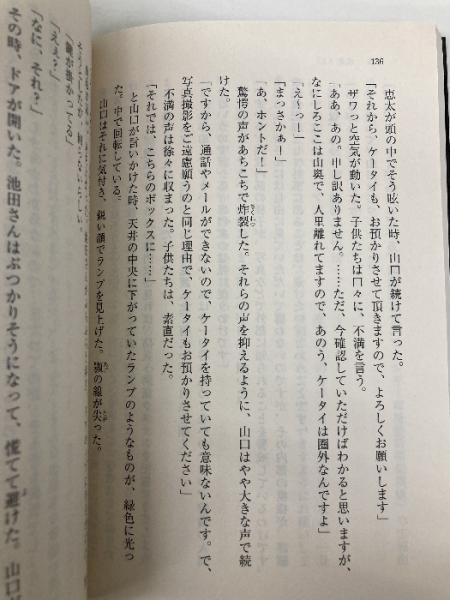 136
恵太が頭の中でそう呟いた時、山口が続けて言った。
「それから、ケータイも、お預かりさせて頂きますので、よろしくお願いします」
ザワっと空気が動いた。子供たちは口々に、不満を言う。
「ああ、あの。申し訳ありません。……ただ、今確認していただけばわかると思いますが、
なにしろここは山奥で、人里離れてますので、あのう、ケータイは圏外なんですよ」
「え〜っー」
「まっさかぁー」
「あ、ホントだ！」
驚愕の声があちこちで炸裂した。それらの声を抑えるように、山口はやや大きな声で続
けた。
「ですから、通話やメールができないので、ケータイを持っていても意味ないんです。で、
写真撮影をご遠慮願うのと同じ理由で、ケータイもお預かりさせてください」
不満の声は徐々に収まった。子供たちは、素直だった。
「それでは、こちらのボックスに……」
と山口が言いかけた時、天井の中央に下がっていたランプのようなものが、緑色に光っ
た。中で回転している。
山口はそれに気付き、鋭い顔でランプを見上げた。顎の線が尖った。
「鍵が掛かってる」
「ええ？」
「なに、それ？」
その時、ドアが開いた。池田さんはぶつかりそうになって、慌てて避けた。山口